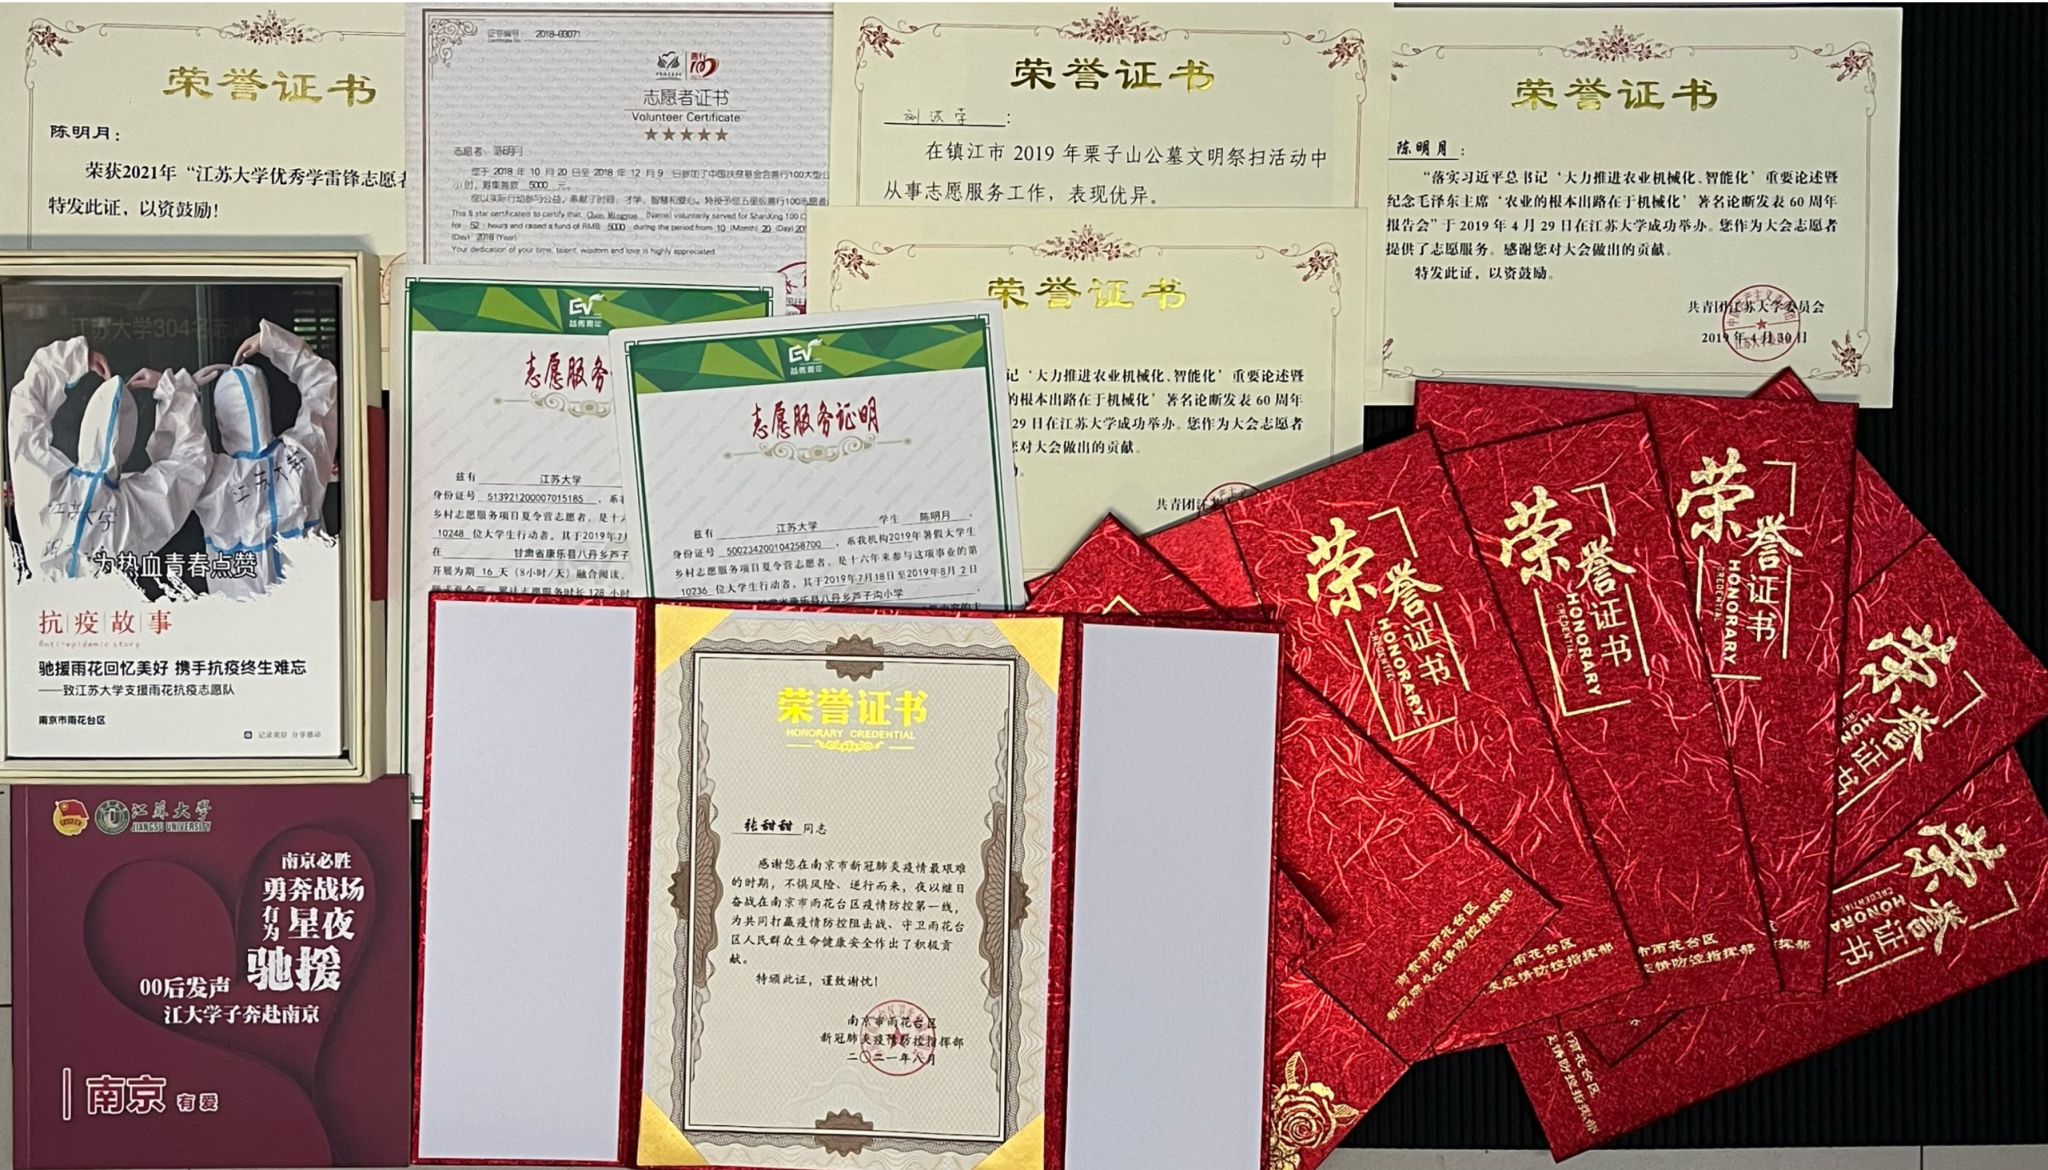 荣誉证书
陈明月：
荣获2021年“江苏大学优秀学雷锋志愿者
特发此证，以资鼓励！
证书编号： 2018-03071
Certificate No.
善行100
志愿者证书
Volunteer Certificate
★★★★★
志愿者： 陈明月
您于 2018 年 10 月 20 日至 2018 年 12 月 9 日参加了中国扶贫基金会善行100大型公
小时，筹集善款 5000 元。
您以实际行动参与公益，奉献了时间、才学、智慧和爱心。特授予您五星级善行100志愿者
This 5 star certificated to certify that Chen Mingyue (Name) voluntarily served for ShanXing 100 C
for 52 hours and raised a fund of RMB 5000 during the period from 10 (Month) 20 (Day) 20
(Day) 2018 (Year)
Your dedication of your time, talent, wisdom and love is highly appreciated
荣誉证书
在镇江市 2019 年栗子山公墓文明祭扫活动中
从事志愿服务工作，表现优异。
荣誉证书
陈明月：
“落实习近平总书记‘大力推进农业机械化、智能化’重要论述暨
纪念毛泽东主席‘农业的根本出路在于机械化’著名论断发表 60 周年
报告会”于 2019 年 4 月 29 日在江苏大学成功举办。您作为大会志愿者
提供了志愿服务。感谢您对大会做出的贡献。
特发此证，以资鼓励。
共青团江苏大学委员会
2019 年 4 月 30 日
荣誉证书
记‘大力推进农业机械化、智能化’重要论述暨
的根本出路在于机械化’著名论断发表 60 周年
29 日在江苏大学成功举办。您作为大会志愿者
您对大会做出的贡献。
共青团江苏
江苏大学304名志愿
江苏大学
江苏大学
为热血青春点赞
抗|疫|故|事
Anti-epidemic story
驰援雨花回忆美好 携手抗疫终生难忘
——致江苏大学支援雨花抗疫志愿队
南京市雨花台区
记录美好 分享感动
EV
益微青年
志愿服务
兹有 江苏大学
身份证号 513921200007015185 ，系我
乡村志愿服务项目夏令营志愿者，是十六
10248 位大学生行动者。其于2019年7月
在 甘肃省康乐县八丹乡芦子
开展为期 16 天（8小时/天）融合阅读、
累计志愿服务时长 128 小时
EV
益微青年
志愿服务证明
兹有 江苏大学 学生 陈明月 ，
身份证号 500234200104258700 ，系我机构2019年暑假大学生
乡村志愿服务项目夏令营志愿者，是十六年来参与这项事业的第
10236 位大学生行动者。其于2019年7月18日至2019年8月2日
省康乐县八丹乡芦子沟小学
江苏大学
JIANGSU UNIVERSITY
南京必胜
勇奔战场
有为星夜
驰援
00后发声
江大学子奔赴南京
南京 有爱
荣誉证书
HONORARY CREDENTIAL
张甜甜 同志
感谢您在南京市新冠肺炎疫情最艰难
的时期，不惧风险、逆行而来，夜以继日
奋战在南京市雨花台区疫情防控第一线，
为共同打赢疫情防控阻击战、守卫雨花台
区人民群众生命健康安全作出了积极贡
献。
特颁此证，谨致谢忱！
南京市雨花台区
新冠肺炎疫情防控指挥部
二〇二一年八月
荣誉证书
HONORARY
CREDENTIAL
南京市雨花台区
新冠肺炎疫情防控指挥部
荣誉证书
HONORARY
CREDENTIAL
雨花台区
炎疫情防控指挥部
荣誉证书
HONORARY
CREDENTIAL
市雨花台区
疫情防控指挥部
荣誉证书
HONOR
荣誉证书
HONORA
CREDENTIAL
雨花台区
疫情防控指挥部